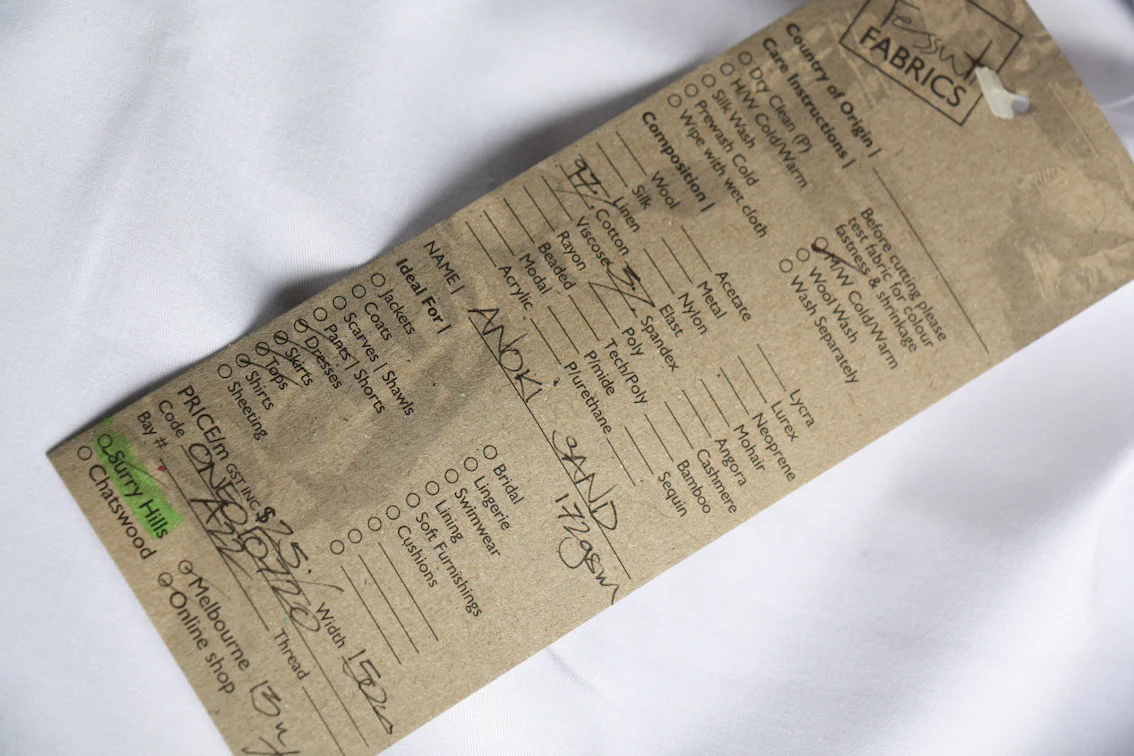 Tessuti
FABRICS
Country of Origin |
Care Instructions |
Dry Clean (P)
H/W Cold/Warm
Silk Wash
Prewash Cold
Wipe with wet cloth
Before cutting please
test fabric for colour
fastness & shrinkage
H/W Cold/Warm
Wool Wash
Wash Separately
Composition |
Wool
Silk
Linen
97% Cotton
Viscose
Rayon
Beaded
Modal
Acrylic
Acetate
Metal
Nylon
Elast
3% Spandex
Poly
Tech/Poly
P/mide
P/urethane
Lycra
Lurex
Neoprene
Mohair
Angora
Cashmere
Bamboo
Sequin
NAME | ANOKI SAND
172gsm
Ideal For |
Jackets
Coats
Scarves | Shawls
Pants | Shorts
Dresses
Skirts
Tops
Shirts
Sheeting
Bridal
Lingerie
Swimwear
Lining
Soft Furnishings
Cushions
PRICE/m GST INC $25. Width 150cm
Code
Bay # A322 Thread
Surry Hills
Chatswood
Melbourne
Online shop
13 my